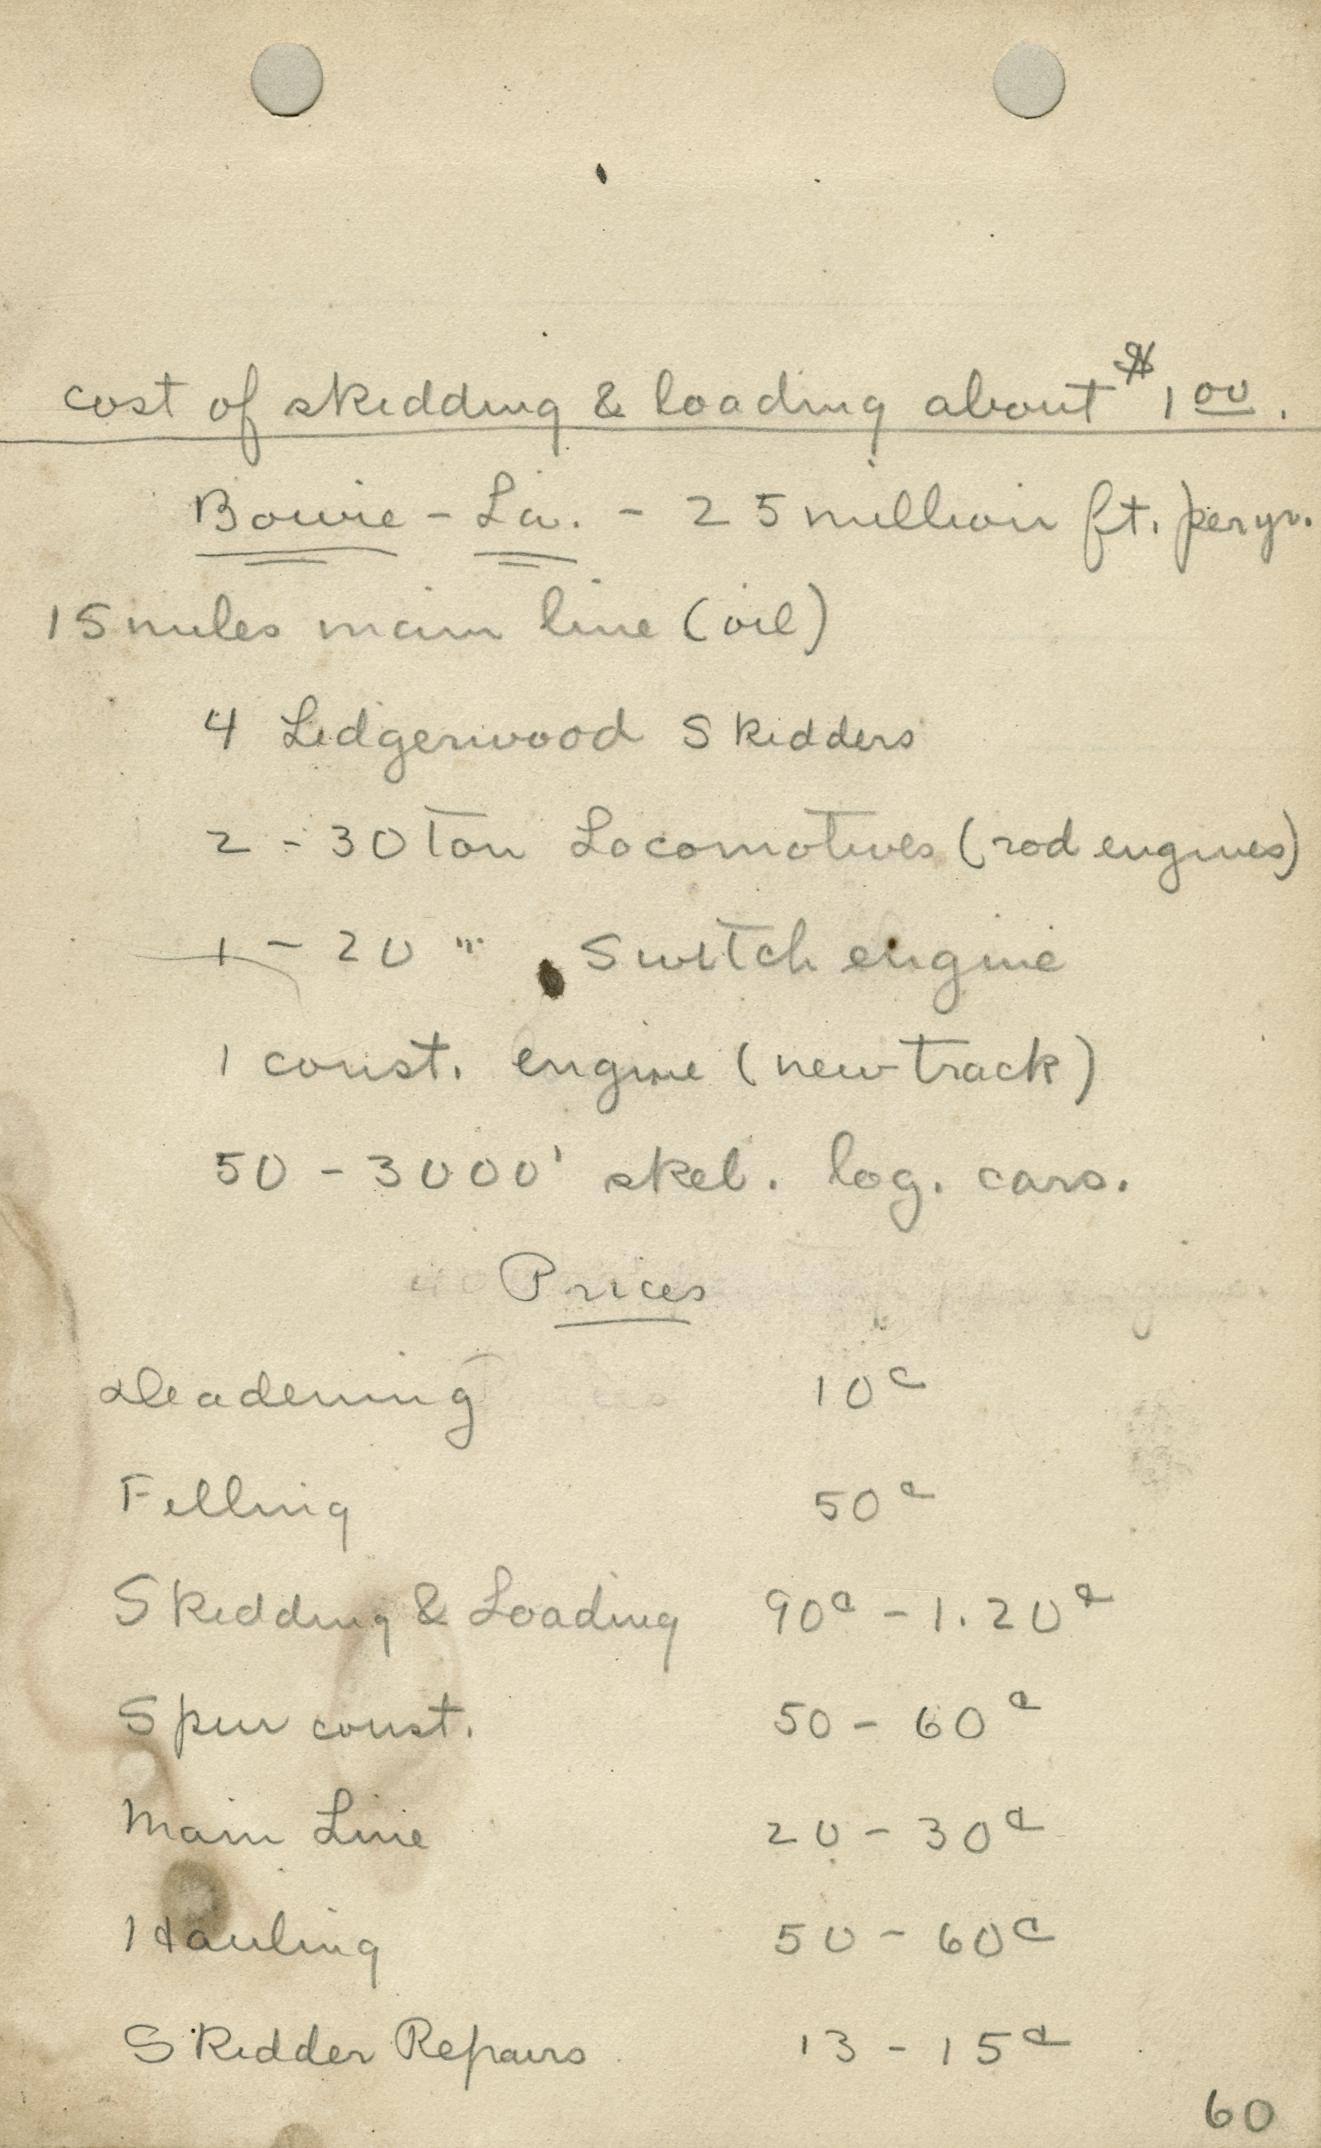 cost of skidding & loading about $1 00.
Bowie - La. - 25 million ft. per yr.
15 miles main line (oil)
4 Lidgerwood Skidders
2 - 30 Ton Locomotives (rod engines)
1 - 20 " Switch engine
1 const. engine (new track)
50 - 3000' skel. log. cars.
Prices
Deadening 10c
Felling 50c
Skidding & Loading 90c - 1.20c
Spur const. 50 - 60c
Main Line 20 - 30c
Hauling 50 - 60c
Skidder Repairs 13 - 15c
60